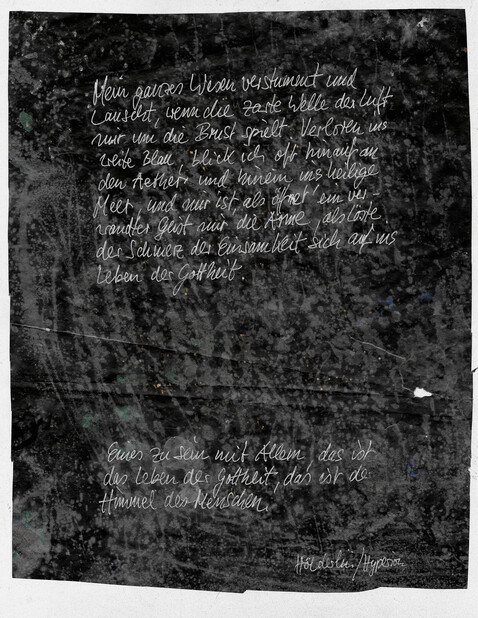 Mein ganzes Wesen verstummt und
lauscht, wenn die zarte Welle der Luft
mir um die Brust spielt. Verloren ins
weite Blau, blick ich oft hinauf an
den Aether und hinein ins heilige
Meer, und mir ist als öffnet' ein ver-
wandter Geist mir die Arme, als löste
der Schmerz der Einsamkeit sich auf ins
Leben der Gottheit.
Eines zu sein mit Allem, das ist
das Leben der Gottheit, das ist der
Himmel des Menschen.
Hölderlin/Hyperion